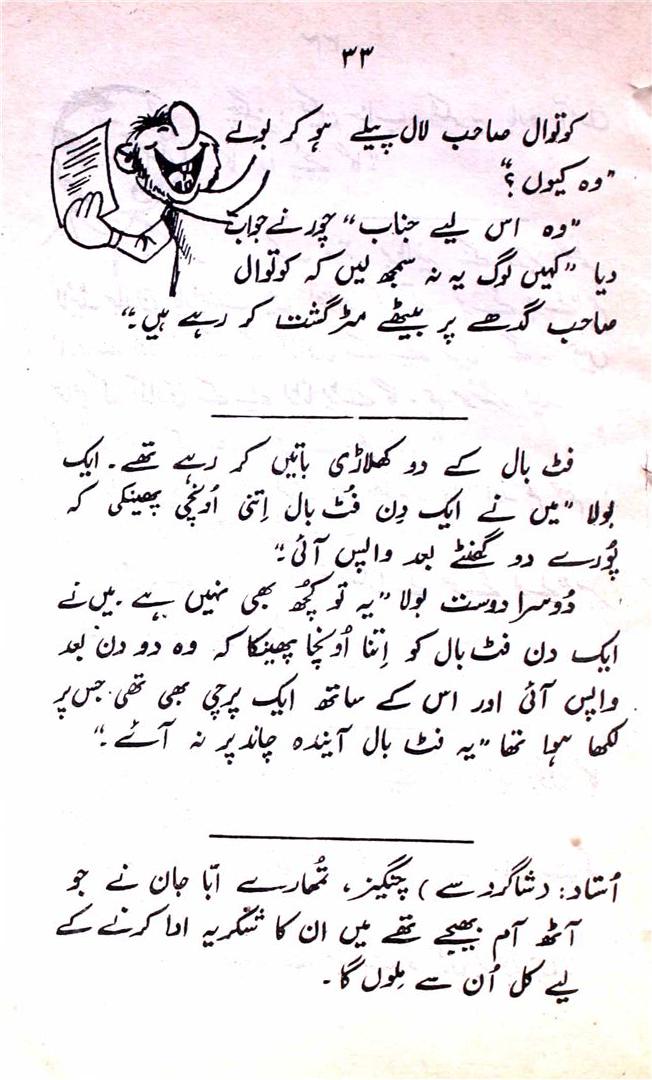 ۳۳
کوتوال صاحب لال پیلے ہو کر بولے
"وہ کیوں؟"
"وہ اس لیے جناب" چور نے جواب
دیا "کہیں لوگ یہ نہ سمجھ لیں کہ کوتوال
صاحب گدھے پر بیٹھے مٹر گشت کر رہے ہیں۔"
فٹ بال کے دو کھلاڑی باتیں کر رہے تھے۔ ایک
بولا "میں نے ایک دِن فُٹ بال اِتنی اُونچی پھینکی کہ
پُورے دو گھنٹے بعد واپس آئی۔"
دُوسرا دوست بولا "یہ تو کُچھ بھی نہیں ہے۔ میں نے
ایک دن فٹ بال کو اِتنا اُونچا پھینکا کہ وہ دو دن بعد
واپس آئی اور اس کے ساتھ ایک پرچی بھی تھی جس پر
لکھا ہوا تھا "یہ فٹ بال آیندہ چاند پر نہ آئے۔"
اُستاد: (شاگرد سے) چنگیز، تمُھارے ابّا جان نے جو
آٹھ آم بھیجے تھے میں ان کا شکریہ ادا کرنے کے
لیے کل اُن سے مِلوں گا۔